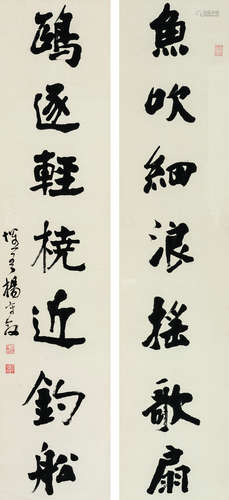 魚吹細浪搖歌扇
鷗逐輕橈近釣船
惺吾楊守敬